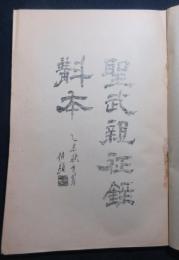 聖武親征錄
斠本
乙未秋